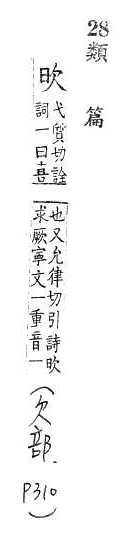 28
類篇
欥
弋質切詮
詞一曰喜
也又允律切引詩欥
求厥寧文一重音一
(欠部.
P310)